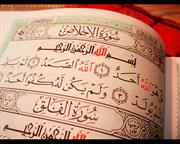 سُورَةُ الإِخْلَاصِ
بِسْمِ اللَّهِ الرَّحْمَٰنِ الرَّحِيمِ
قُلْ هُوَ اللَّهُ أَحَدٌ ١ اللَّهُ الصَّمَدُ ٢ لَمْ يَلِدْ
وَلَمْ يُولَدْ ٣ وَلَمْ يَكُن لَّهُ كُفُوًا أَحَدٌ
سُورَةُ الْفَلَقِ
بِسْمِ اللَّهِ الرَّحْمَٰنِ الرَّحِيمِ